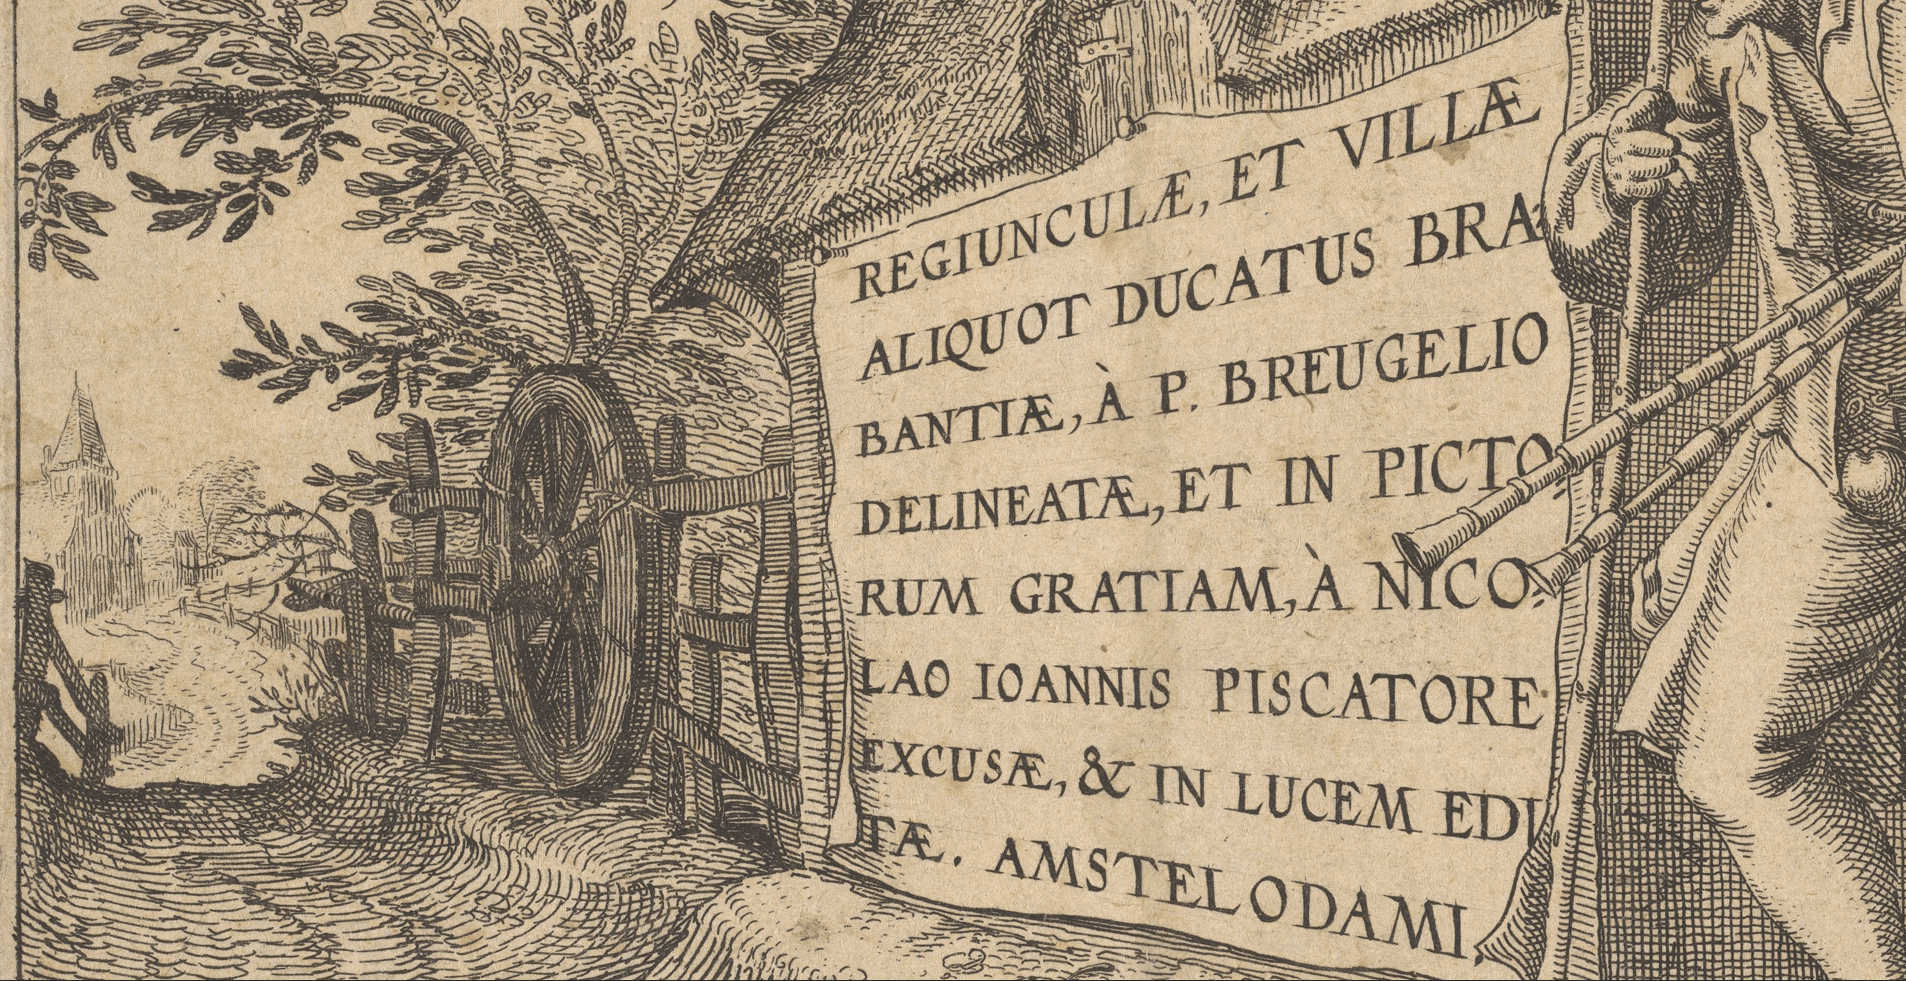 REGIUNCULÆ, ET VILLÆ
ALIQUOT DUCATUS BRA
BANTIÆ, À P. BREUGELIO
DELINEATÆ, ET IN PICTO
RUM GRATIAM, À NICO:
LAO IOANNIS PISCATORE
EXCUSÆ, & IN LUCEM EDI
TÆ. AMSTELODAMI.